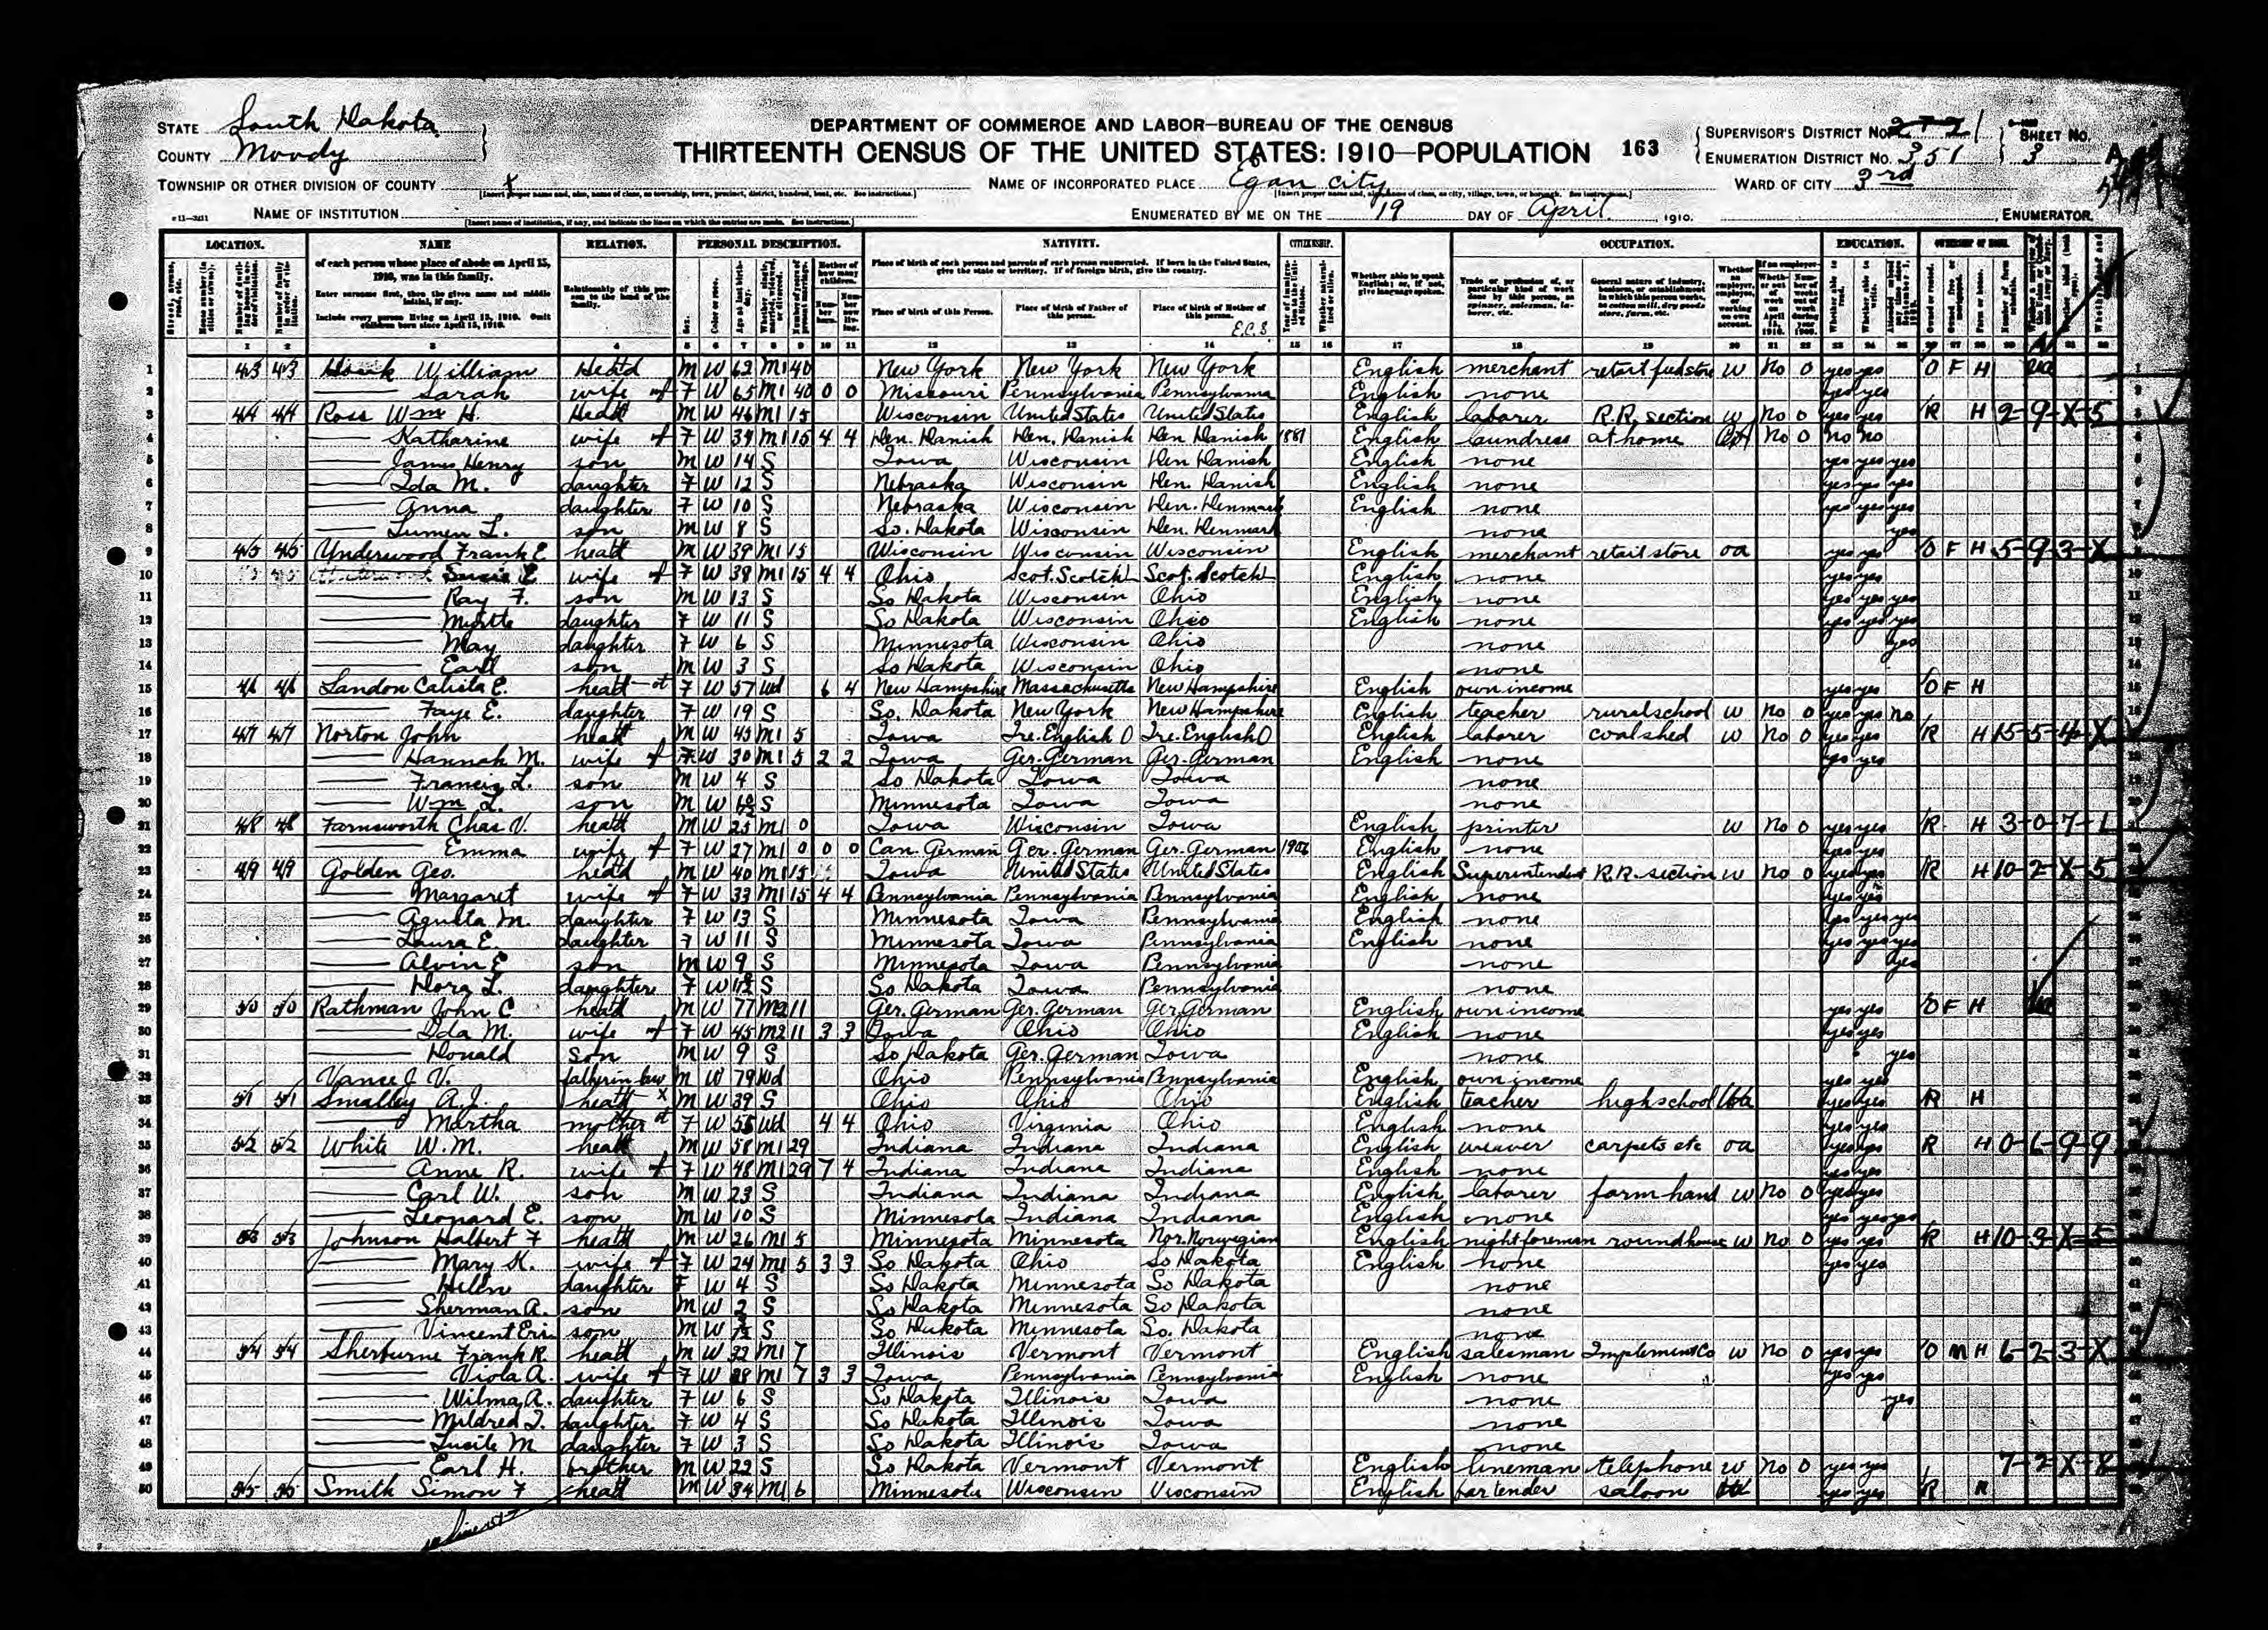 STATE South Dakota
COUNTY Moody
DEPARTMENT OF COMMERCE AND LABOR—BUREAU OF THE CENSUS
THIRTEENTH CENSUS OF THE UNITED STATES: 1910—POPULATION 163
SUPERVISOR'S DISTRICT NO. 1 SHEET NO.
ENUMERATION DISTRICT NO. 351 3 A
TOWNSHIP OR OTHER DIVISION OF COUNTY X NAME OF INCORPORATED PLACE Egan City WARD OF CITY 3rd
NAME OF INSTITUTION ENUMERATED BY ME ON THE 19 DAY OF April, 1910. ENUMERATOR.
LOCATION. NAME RELATION. PERSONAL DESCRIPTION. NATIVITY. CITIZENSHIP. OCCUPATION. EDUCATION. OWNERSHIP OF HOME.
of each person whose place of abode on April 15, 1910, was in this family.
Enter surname first, then the given name and middle initial, if any.
Include every person living on April 15, 1910. Omit children born since April 15, 1910.
Relationship of this person to the head of the family.
Place of birth of each person and parents of each person enumerated. If born in the United States, give the state or territory. If of foreign birth, give the country.
Place of birth of this Person. Place of birth of Father of this person. Place of birth of Mother of this person.
E.C.S.
1 43 43 William Head M W 62 M1 40 New York New York New York English merchant retail feed store W No 0 yes yes O F H
2 Sarah wife F W 65 M1 40 0 0 Missouri Pennsylvania Pennsylvania English none yes yes
3 44 44 Ross Wm H. Head M W 46 M1 15 Wisconsin United States United States English laborer R.R. section W No 0 yes yes R H 2-9-X-5
4 Katharine wife F W 39 M1 15 4 4 Den. Danish Den. Danish Den Danish 1881 English laundress at home No 0 no no
5 James Henry son M W 14 S Iowa Wisconsin Den Danish English none yes yes yes
6 Ida M. daughter F W 12 S Nebraska Wisconsin Den. Danish English none yes yes yes
7 Anna daughter F W 10 S Nebraska Wisconsin Den. Denmark English none yes yes yes
8 Lumen L. son M W 8 S So. Dakota Wisconsin Den. Denmark none yes
9 45 45 Underwood Frank E. head M W 39 M1 15 Wisconsin Wisconsin Wisconsin English merchant retail store oa yes yes O F H 5-9-3-X
10 Susie E wife F W 38 M1 15 4 4 Ohio Scot. Scotch Scot. Scotch English none yes yes
11 Ray F. son M W 13 S So Dakota Wisconsin Ohio English none yes yes yes
12 Myrtle daughter F W 11 S So Dakota Wisconsin Ohio English none yes yes yes
13 May daughter F W 6 S Minnesota Wisconsin Ohio none yes
14 Earl son M W 3 S So Dakota Wisconsin Ohio none
15 46 46 Landon Calista E. head F W 57 Wd 6 4 New Hampshire Massachusetts New Hampshire English own income yes yes O F H
16 Faye E. daughter F W 19 S So. Dakota New York New Hampshire English teacher rural school W No 0 yes yes no
17 47 47 Norton John head M W 45 M1 5 Iowa Ire. English Ire. English English laborer coal shed W No 0 yes yes R H 15-5-4-X
18 Hannah M. wife F W 30 M1 5 2 2 Iowa Ger. German Ger. German English none yes yes
19 Francis L. son M W 4 S So Dakota Iowa Iowa none
20 Wm L. son M W S Minnesota Iowa Iowa none
21 48 48 Farnsworth Chas V. head M W 25 M1 0 Iowa Wisconsin Iowa English printer W No 0 yes yes R H 3-0-7-1
22 Emma wife F W 27 M1 0 0 0 Can. German Ger. German Ger. German 1906 English none yes yes
23 49 49 Golden Geo. head M W 40 M1 15 Iowa United States United States English Superintendent R.R. section W No 0 yes yes R H 10-2-X-5
24 Margaret wife F W 33 M1 15 4 4 Pennsylvania Pennsylvania Pennsylvania English none yes yes
25 Agulta M. daughter F W 13 S Minnesota Iowa Pennsylvania English none yes yes yes
26 Laura E. daughter F W 11 S Minnesota Iowa Pennsylvania English none yes yes yes
27 Alvin E son M W 9 S Minnesota Iowa Pennsylvania none yes
28 Dora L. daughter F W S So Dakota Iowa Pennsylvania none
29 50 50 Rathman John C head M W 77 M2 11 Ger. German Ger. German Ger German English own income yes yes O F H
30 Ida M. wife F W 45 M2 11 3 3 Iowa Ohio Ohio English none yes yes
31 Donald son M W 9 S So Dakota Ger. German Iowa none yes
32 Vance J. V. father in law M W 79 Wd Ohio Pennsylvania Pennsylvania English own income yes yes
33 51 51 Smalley A. J. head X M W 39 S Ohio Ohio Ohio English teacher high school yes yes R H
34 Martha mother F W 55 Wd 4 4 Ohio Virginia Ohio English none yes yes
35 52 52 White W. M. head M W 58 M1 29 Indiana Indiana Indiana English weaver carpets etc oa yes yes R H 0-6-9-9
36 Anne R. wife F W 48 M1 29 7 4 Indiana Indiana Indiana English none yes yes
37 Carl W. son M W 23 S Indiana Indiana Indiana English laborer farm hand W No 0 yes yes
38 Leonard E. son M W 10 S Minnesota Indiana Indiana English none yes yes yes
39 53 53 Johnson Halbert F head M W 26 M1 5 Minnesota Minnesota Nor. Norwegian English night foreman roundhouse W No 0 yes yes R H 10-3-X-5
40 Mary K. wife F W 24 M1 5 3 3 So Dakota Ohio So Dakota English none yes yes
41 Hellen daughter F W 4 S So Dakota Minnesota So Dakota none
42 Sherman A. son M W 2 S So Dakota Minnesota So Dakota none
43 Vincent Eri son M W S So Dakota Minnesota So. Dakota none
44 54 54 Sherburne Frank R. head M W 32 M1 7 Illinois Vermont Vermont English salesman Implement Co W No 0 yes yes O M H 6-2-3-X
45 Viola A. wife F W 28 M1 7 3 3 Iowa Pennsylvania Pennsylvania English none yes yes
46 Wilma A. daughter F W 6 S So Dakota Illinois Iowa none yes
47 Mildred I. daughter F W 4 S So Dakota Illinois Iowa none
48 Lucile M daughter F W 3 S So Dakota Illinois Iowa none
49 Earl H. brother M W 22 S So Dakota Vermont Vermont English lineman telephone W No 0 yes yes 7-2-X-X
50 55 55 Smith Simon F head M W 34 M1 6 Minnesota Wisconsin Wisconsin English bartender saloon W yes yes R H